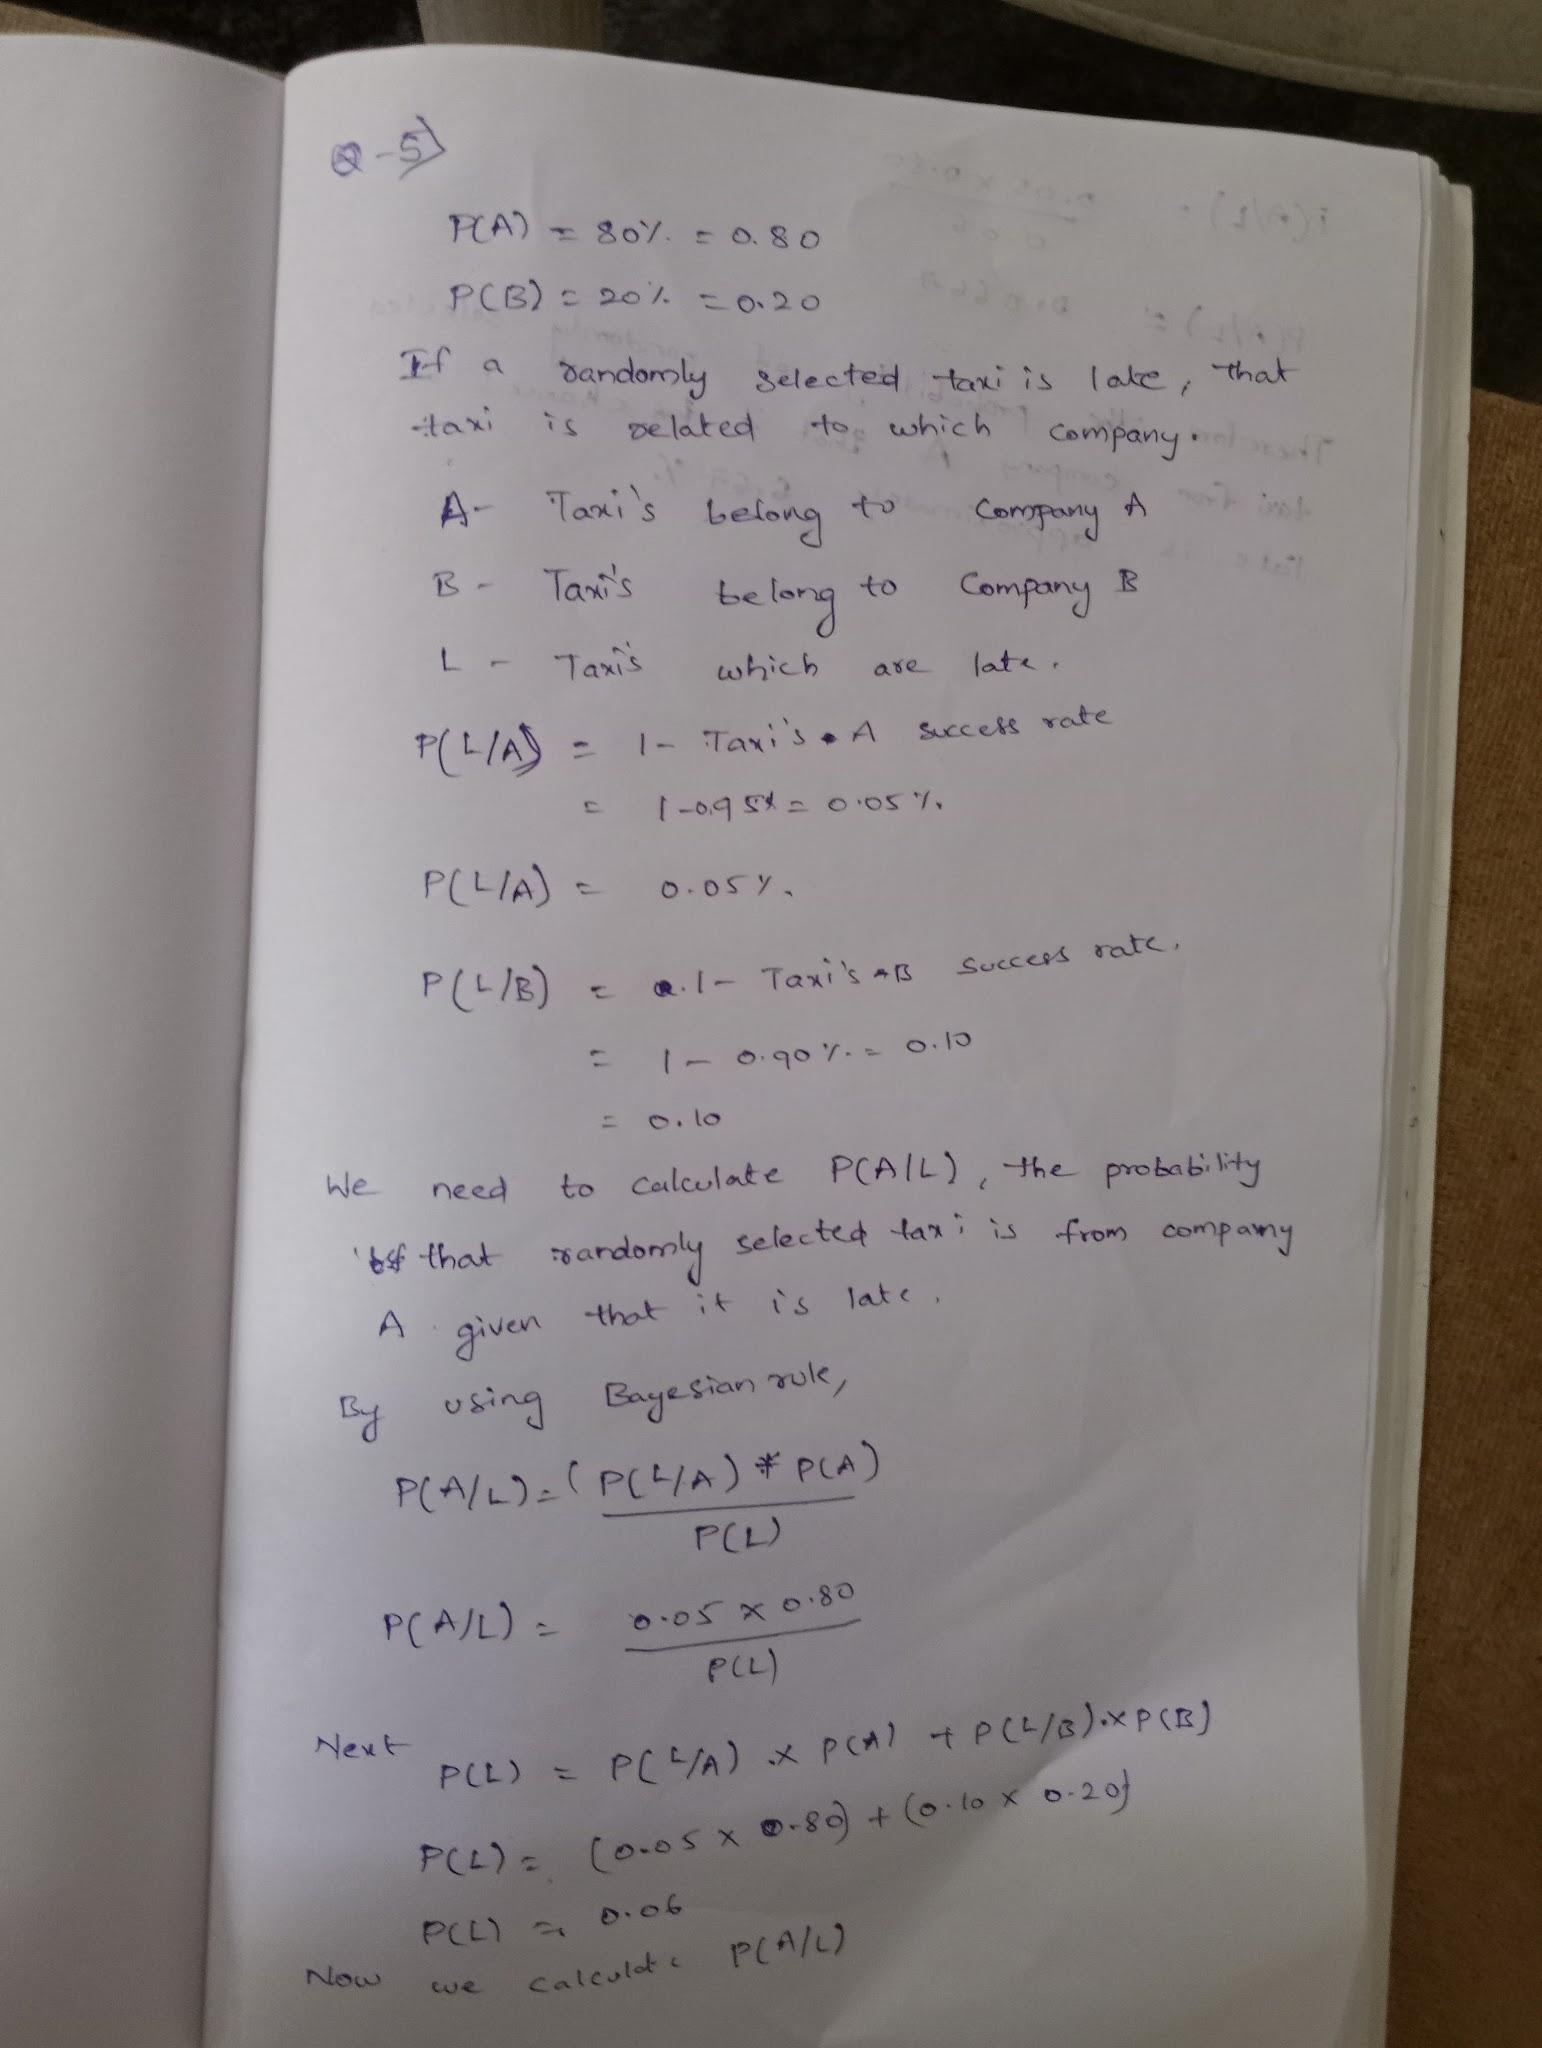 Q-5)
P(A) = 80% = 0.80
P(B) = 20% = 0.20
If a randomly selected taxi is late, that
taxi is related to which company.
A- Taxi's belong to Company A
B - Taxi's belong to Company B
L - Taxi's which are late.
P(L/A) = 1 - Taxi's A success rate
= 1-0.95% = 0.05%.
P(L/A) = 0.05%.
P(L/B) = 1 - Taxi's B success rate.
= 1 - 0.90%. = 0.10
= 0.10
We need to calculate P(A/L), the probability
that randomly selected taxi is from company
A given that it is late.
By using Bayesian rule,
P(A/L) = (P(L/A) * P(A)
P(L)
P(A/L) = 0.05 x 0.80
P(L)
Next P(L) = P(L/A) x P(A) + P(L/B).x P(B)
P(L) = (0.05 x 0.80) + (0.10 x 0.20)
P(L) = 0.06
Now we calculate P(A/L)